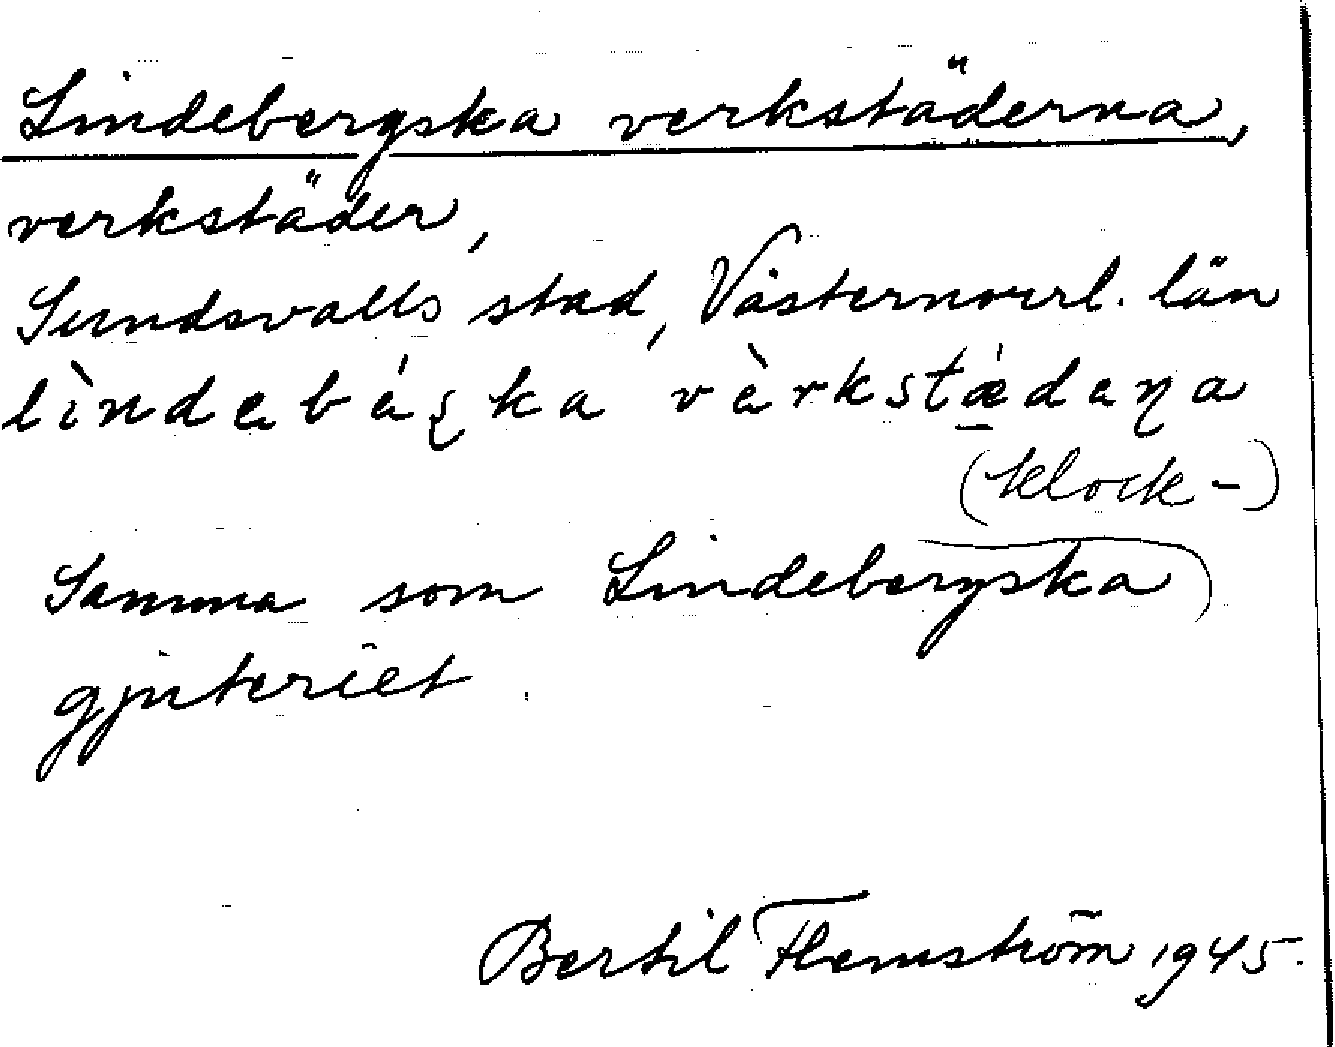 Lindebergska verkstäderna,
verkstäder,
Sundsvalls stad, Västernorrl. län
lìndebáʂka vàrkstǽdeɳa
(klock-)
Samma som Lindebergska
gjuteriet.
Bertil Flemström 1945.